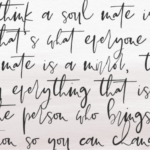 think a soul mate is
that's what everyone
mate is a mirror, t
everything that is
e person who brings
on so you can chan